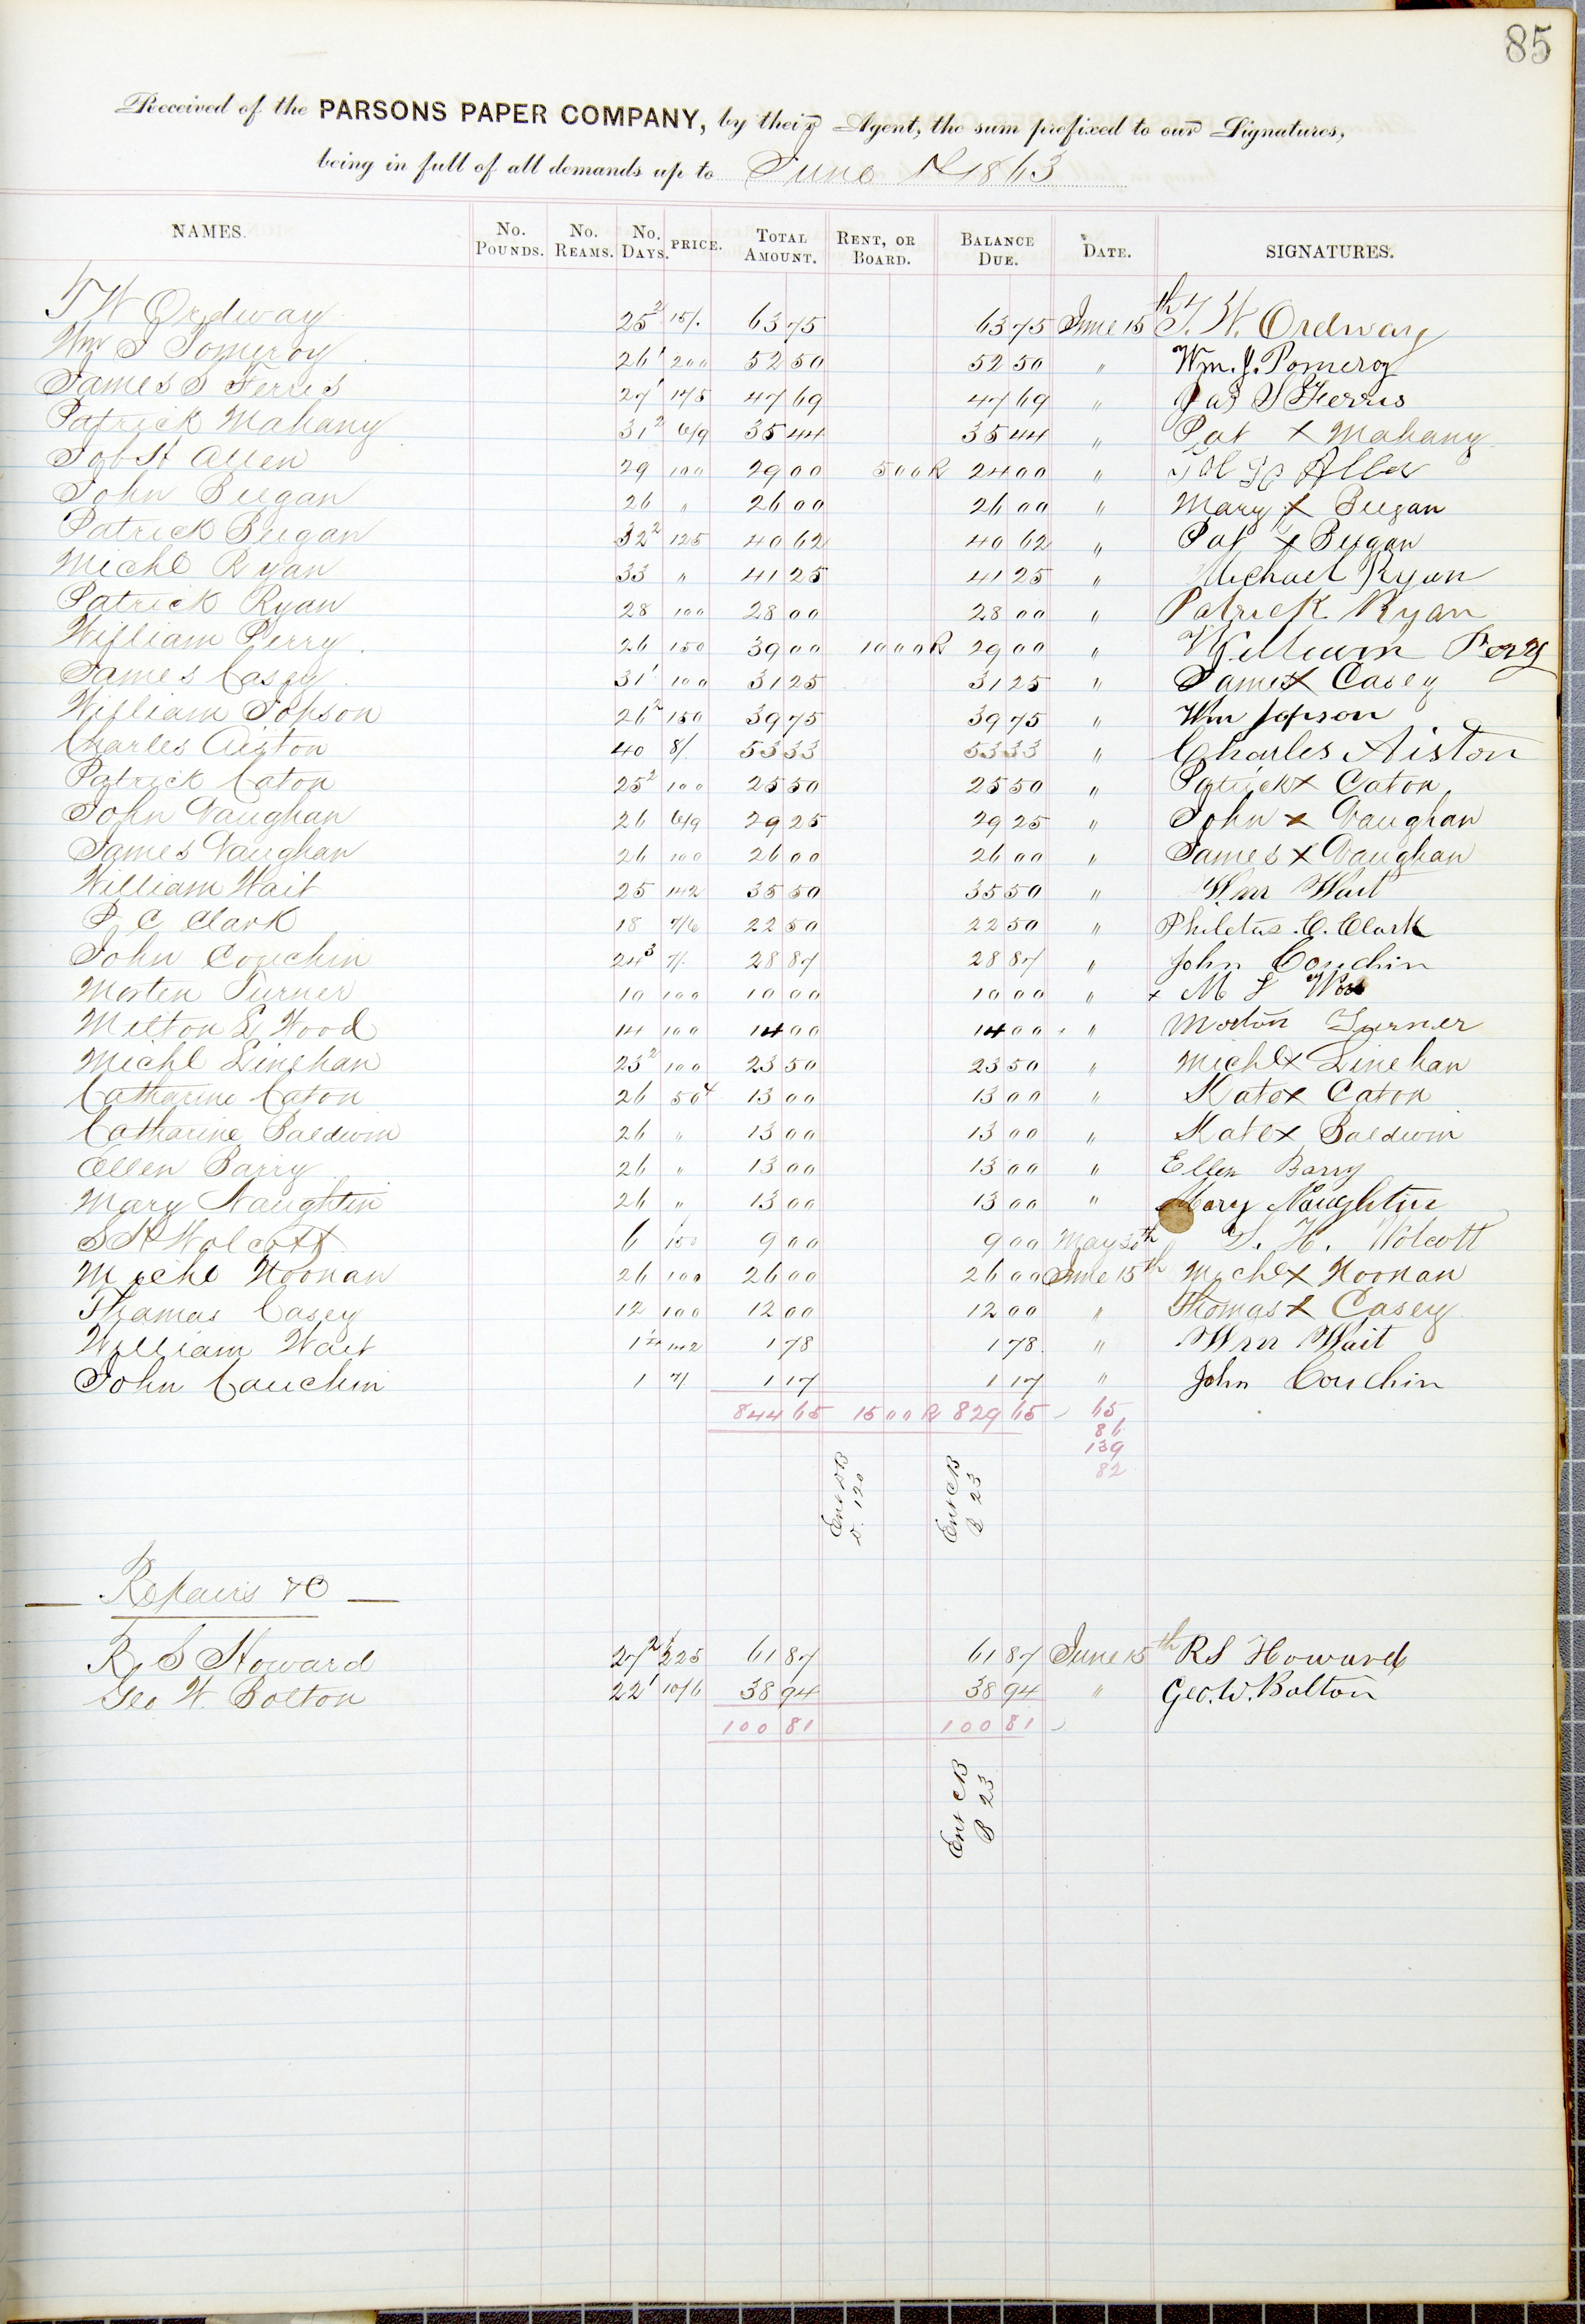 85
Received of the PARSONS PAPER COMPANY, by their Agent, the sum prefixed to our Signatures,
being in full of all demands up to June 1st 1863
NAMES. No. POUNDS. No. REAMS. No. DAYS. PRICE. TOTAL AMOUNT. RENT, OR BOARD. BALANCE DUE. DATE. SIGNATURES.
T W Ordway 25² 15/. 63 75 63 75 June 15th T. W. Ordway
Wm J Pomeroy 26¹ 200 52 50 52 50 " Wm. J. Pomeroy
James S Ferris 27¹ 175 47 69 47 69 " Jas S Ferris
Patrick Mahany 31² 6/9 35 44 35 44 " Pat X Mahany
Job H Allen 29 100 29 00 5 00 R 24 00 " Job H Allen
John Beegan 26 " 26 00 26 00 " Mary X Beegan
Patrick Beegan 32² 125 40 62 40 62 " Pat X Beegan
Michl Ryan 33 " 41 25 41 25 " Michael Ryan
Patrick Ryan 28 100 28 00 28 00 " Patrick Ryan
William Perry 26 150 39 00 10 00 R 29 00 " William Pery
James Casey 31¹ 100 31 25 31 25 " James X Casey
William Jopson 26² 150 39 75 39 75 " Wm Jopson
Charles Aiston 40 8/. 53 33 53 33 " Charles Aiston
Patrick Caton 25² 100 25 50 25 50 " Patrick X Caton
John Vaughan 26 6/9 29 25 29 25 " John X Vaughan
James Vaughan 26 100 26 00 26 00 " James X Vaughan
William Wait 25 142 35 50 35 50 " Wm Wait
P C Clark 18 7/6 22 50 22 50 " Philetus C. Clark
John Couchin 24³ 7/. 28 87 28 87 " John Couchin
Morten Turner 10 100 10 00 10 00 " x M L Woo
Milton L Wood 14 100 14 00 14 00 " Morton Turner
Michl Linehan 23² 100 23 50 23 50 " Michl X Linehan
Catharine Caton 26 50 13 00 13 00 " Kate X Caton
Catharine Baldwin 26 " 13 00 13 00 " Kate X Baldwin
Ellen Barry 26 " 13 00 13 00 " Ellen Barry
Mary Naughtin 26 " 13 00 13 00 " Mary Naughtin
S H Wolcott 6 150 9 00 9 00 May 30th S. H. Wolcott
Michl Noonan 26 100 26 00 26 00 June 15th Michl X Noonan
Thomas Casey 12 100 12 00 12 00 " Thomas X Casey
William Wait 1¼ 142 1 78 1 78 " Wm Wait
John Couchin 1 7/ 1 17 1 17 " John Couchin
844 65 15 00 R 829 65 65
86
139
82
Ent DB
P. 120
Ent CB
P 23
Repairs &C
R S Howard 27² 225 61 87 61 87 June 15th R S Howard
Geo W Bolton 22¹ 10/6 38 94 38 94 " Geo. W. Bolton
100 81 100 81
Ent CB
P 23